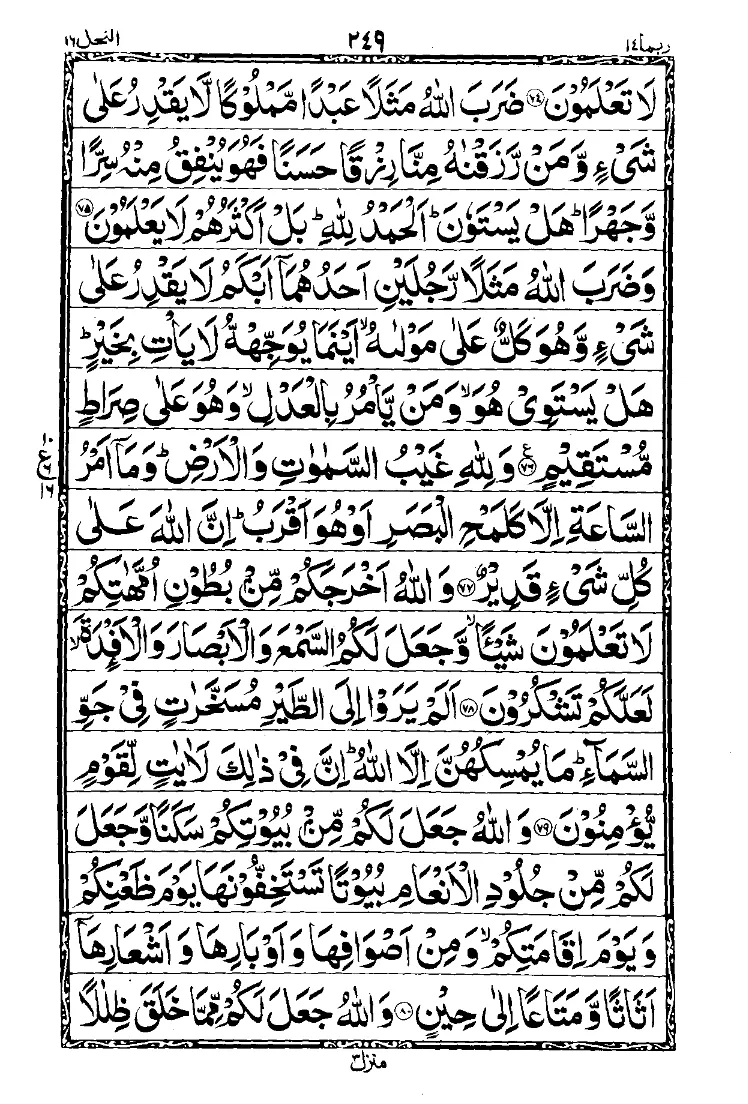 ربما١٤ ٢٤٩ النحل١٦
لَا تَعْلَمُوْنَ ﴿۷۴﴾ ضَرَبَ اللّٰهُ مَثَلًا عَبْدًا مَّمْلُوْكًا لَّا يَقْدِرُ عَلٰى
شَىْءٍ وَّمَنْ رَّزَقْنٰهُ مِنَّا رِزْقًا حَسَنًا فَهُوَ يُنْفِقُ مِنْهُ سِرًّا
وَّجَهْرًا ؕ هَلْ يَسْتَوٗنَ ؕ اَلْحَمْدُ لِلّٰهِ ؕ بَلْ اَكْثَرُهُمْ لَا يَعْلَمُوْنَ ﴿۷۵﴾
وَضَرَبَ اللّٰهُ مَثَلًا رَّجُلَيْنِ اَحَدُهُمَاۤ اَبْكَمُ لَا يَقْدِرُ عَلٰى
شَىْءٍ وَّهُوَ كَلٌّ عَلٰى مَوْلٰىهُ ۙ اَيْنَمَا يُوَجِّهْهُّ لَا يَاْتِ بِخَيْرٍ ؕ
هَلْ يَسْتَوِىْ هُوَ ۙ وَمَنْ يَّاْمُرُ بِالْعَدْلِ ۙ وَهُوَ عَلٰى صِرَاطٍ
مُّسْتَقِيْمٍ ﴿۷۶﴾ ع وَلِلّٰهِ غَيْبُ السَّمٰوٰتِ وَالْاَرْضِ ؕ وَمَاۤ اَمْرُ
١٠ ع ١٦
السَّاعَةِ اِلَّا كَلَمْحِ الْبَصَرِ اَوْ هُوَ اَقْرَبُ ؕ اِنَّ اللّٰهَ عَلٰى
كُلِّ شَىْءٍ قَدِيْرٌ ﴿۷۷﴾ وَاللّٰهُ اَخْرَجَكُمْ مِّنْۢ بُطُوْنِ اُمَّهٰتِكُمْ
لَا تَعْلَمُوْنَ شَيْـًٔا ۙ وَّجَعَلَ لَكُمُ السَّمْعَ وَالْاَبْصَارَ وَالْاَفْـِٕدَةَ ۙ
لَعَلَّكُمْ تَشْكُرُوْنَ ﴿۷۸﴾ اَلَمْ يَرَوْا اِلَى الطَّيْرِ مُسَخَّرٰتٍ فِىْ جَوِّ
السَّمَآءِ ؕ مَا يُمْسِكُهُنَّ اِلَّا اللّٰهُ ؕ اِنَّ فِىْ ذٰلِكَ لَاٰيٰتٍ لِّقَوْمٍ
يُّؤْمِنُوْنَ ﴿۷۹﴾ وَاللّٰهُ جَعَلَ لَكُمْ مِّنْۢ بُيُوْتِكُمْ سَكَنًا وَّجَعَلَ
لَكُمْ مِّنْ جُلُوْدِ الْاَنْعَامِ بُيُوْتًا تَسْتَخِفُّوْنَهَا يَوْمَ ظَعْنِكُمْ
وَيَوْمَ اِقَامَتِكُمْ ۙ وَمِنْ اَصْوَافِهَا وَاَوْبَارِهَا وَاَشْعَارِهَاۤ
اَثَاثًا وَّمَتَاعًا اِلٰى حِيْنٍ ﴿۸۰﴾ وَاللّٰهُ جَعَلَ لَكُمْ مِّمَّا خَلَقَ ظِلٰلًا
منزل٣